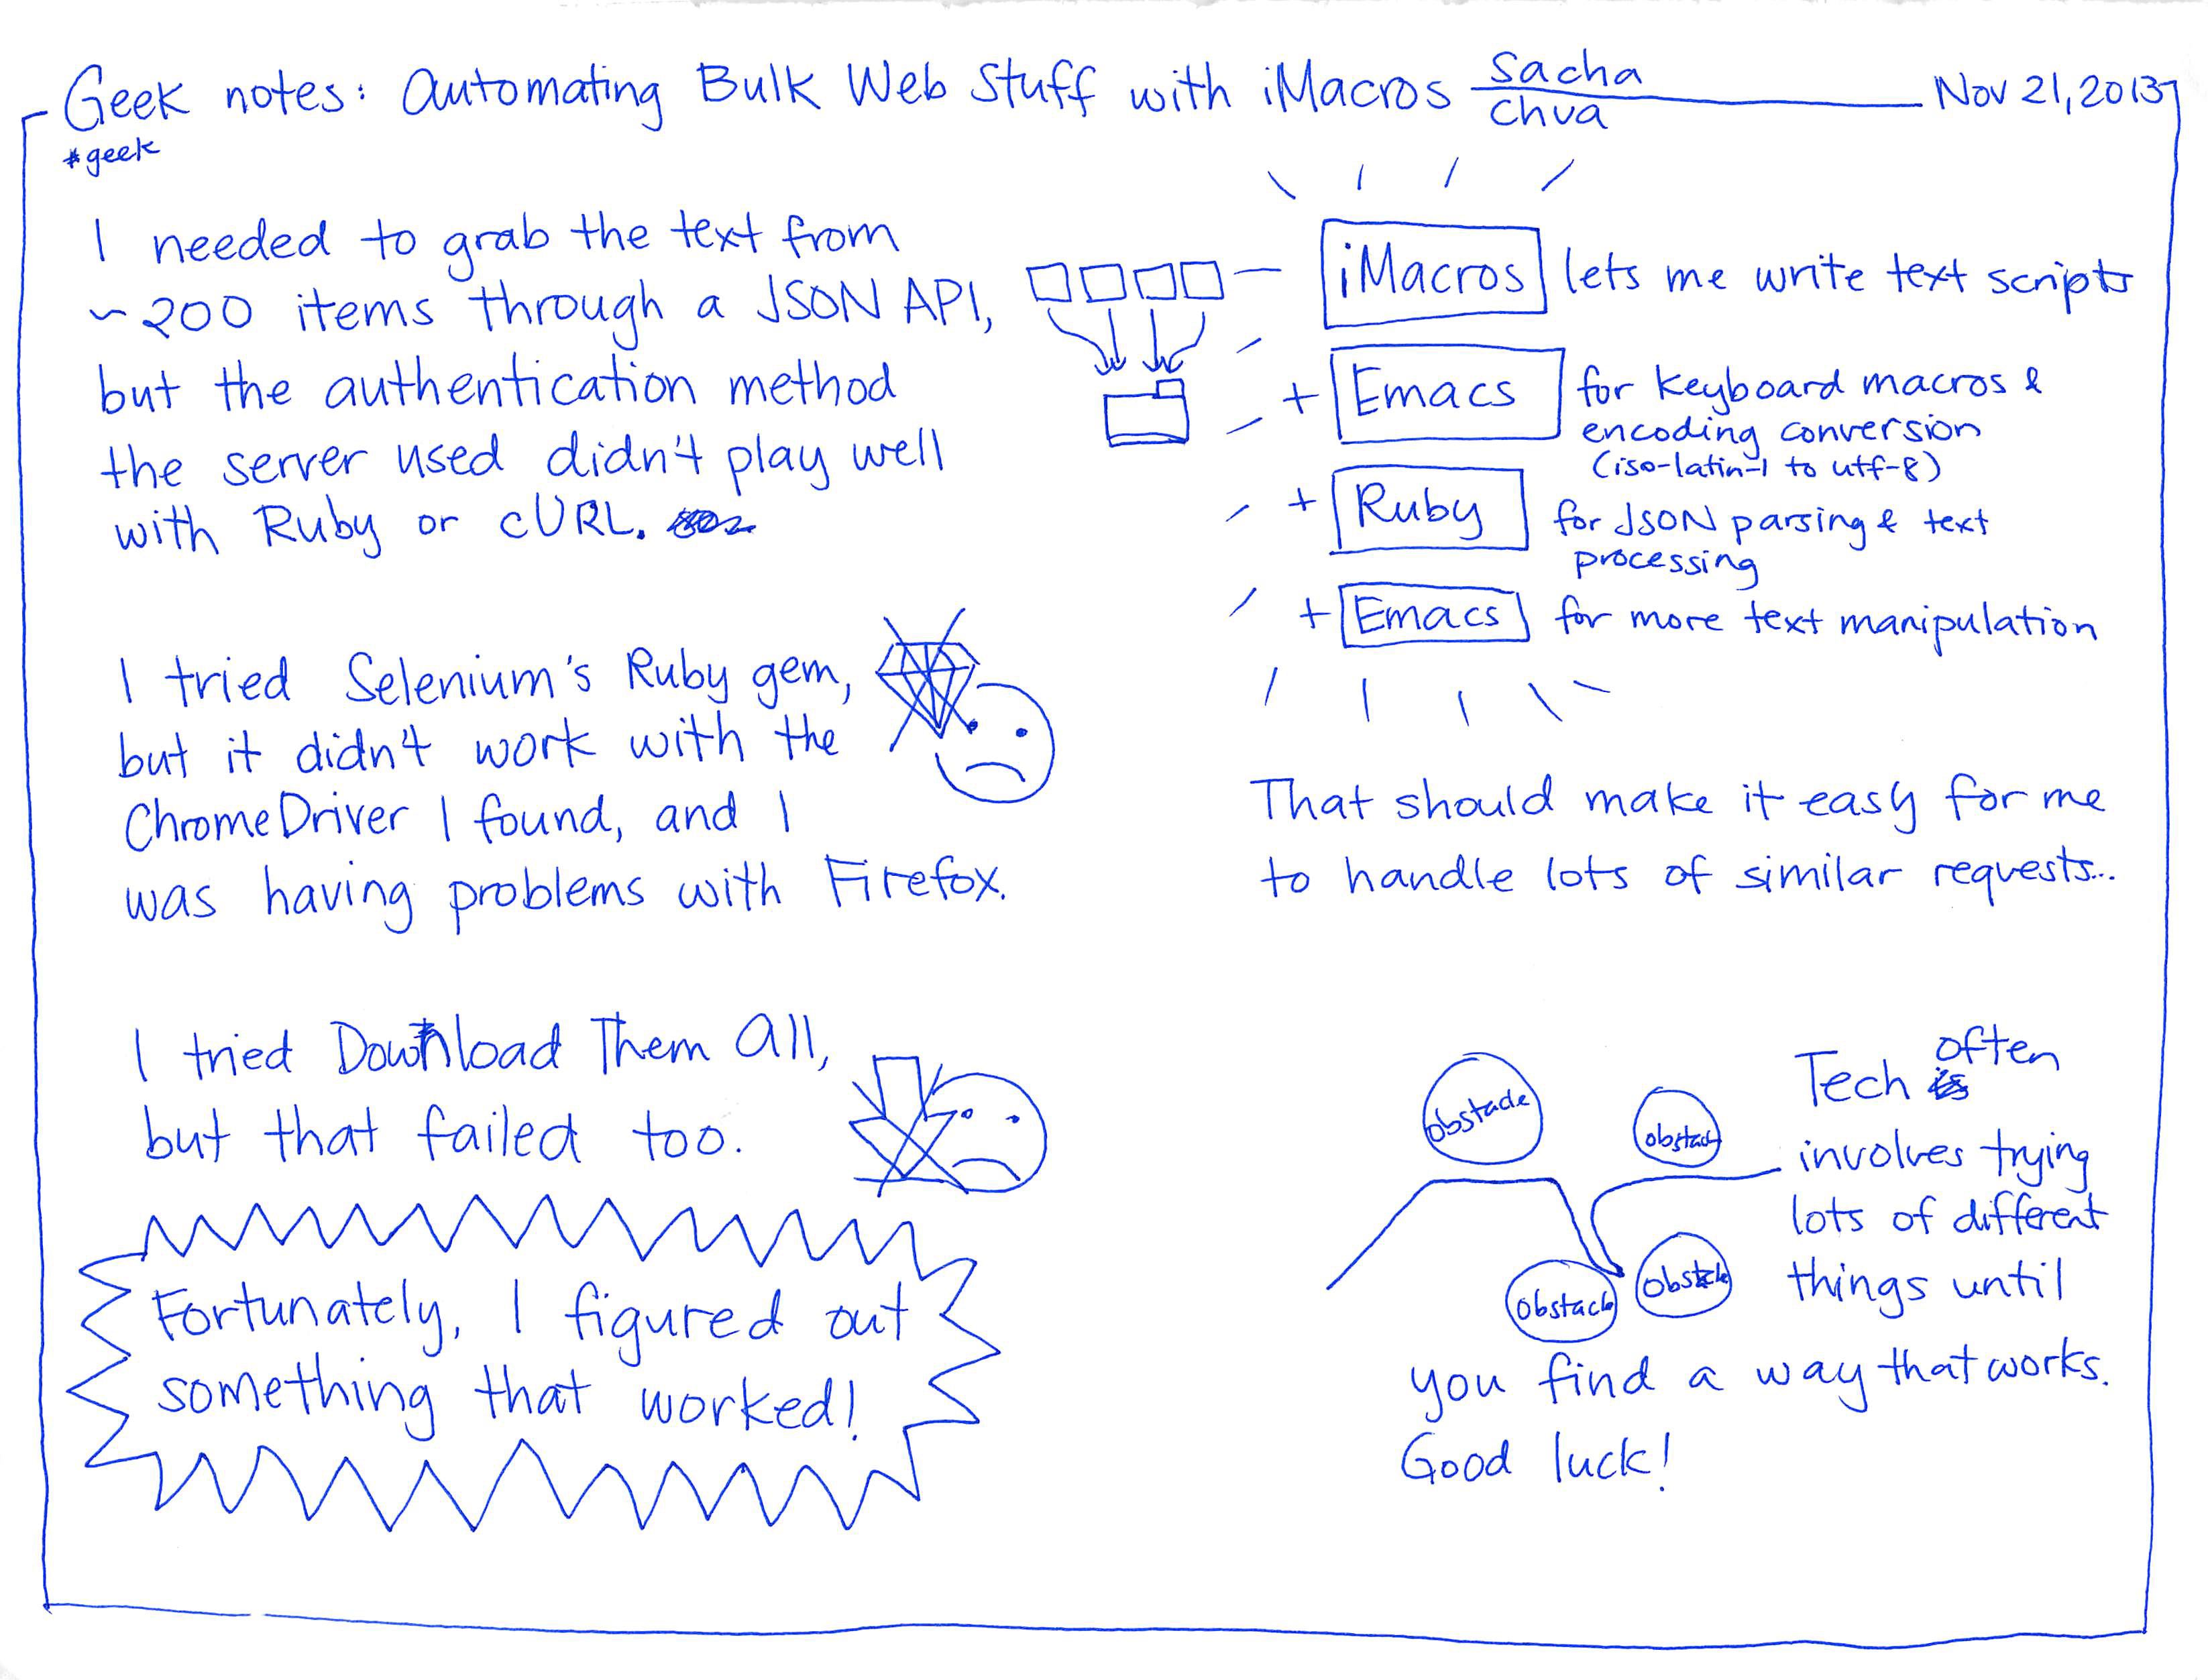 Geek notes: Automating Bulk Web Stuff with iMacros
Sacha
Chua
Nov 21, 2013
#geek
I needed to grab the text from
~200 items through a JSON API,
but the authentication method
the server used didn't play well
with Ruby or cURL.
I tried Selenium's Ruby gem,
but it didn't work with the
ChromeDriver I found, and I
was having problems with Firefox.
I tried Download Them All,
but that failed too.
Fortunately, I figured out
something that worked!
iMacros lets me write text scripts
+ Emacs for keyboard macros &
encoding conversion
(iso-latin-1 to utf-8)
+ Ruby for JSON parsing & text
processing
+ Emacs for more text manipulation
That should make it easy for me
to handle lots of similar requests...
obstacle
obstacle
obstacle
obstacle
Tech often
involves trying
lots of different
things until
you find a way that works.
Good luck!